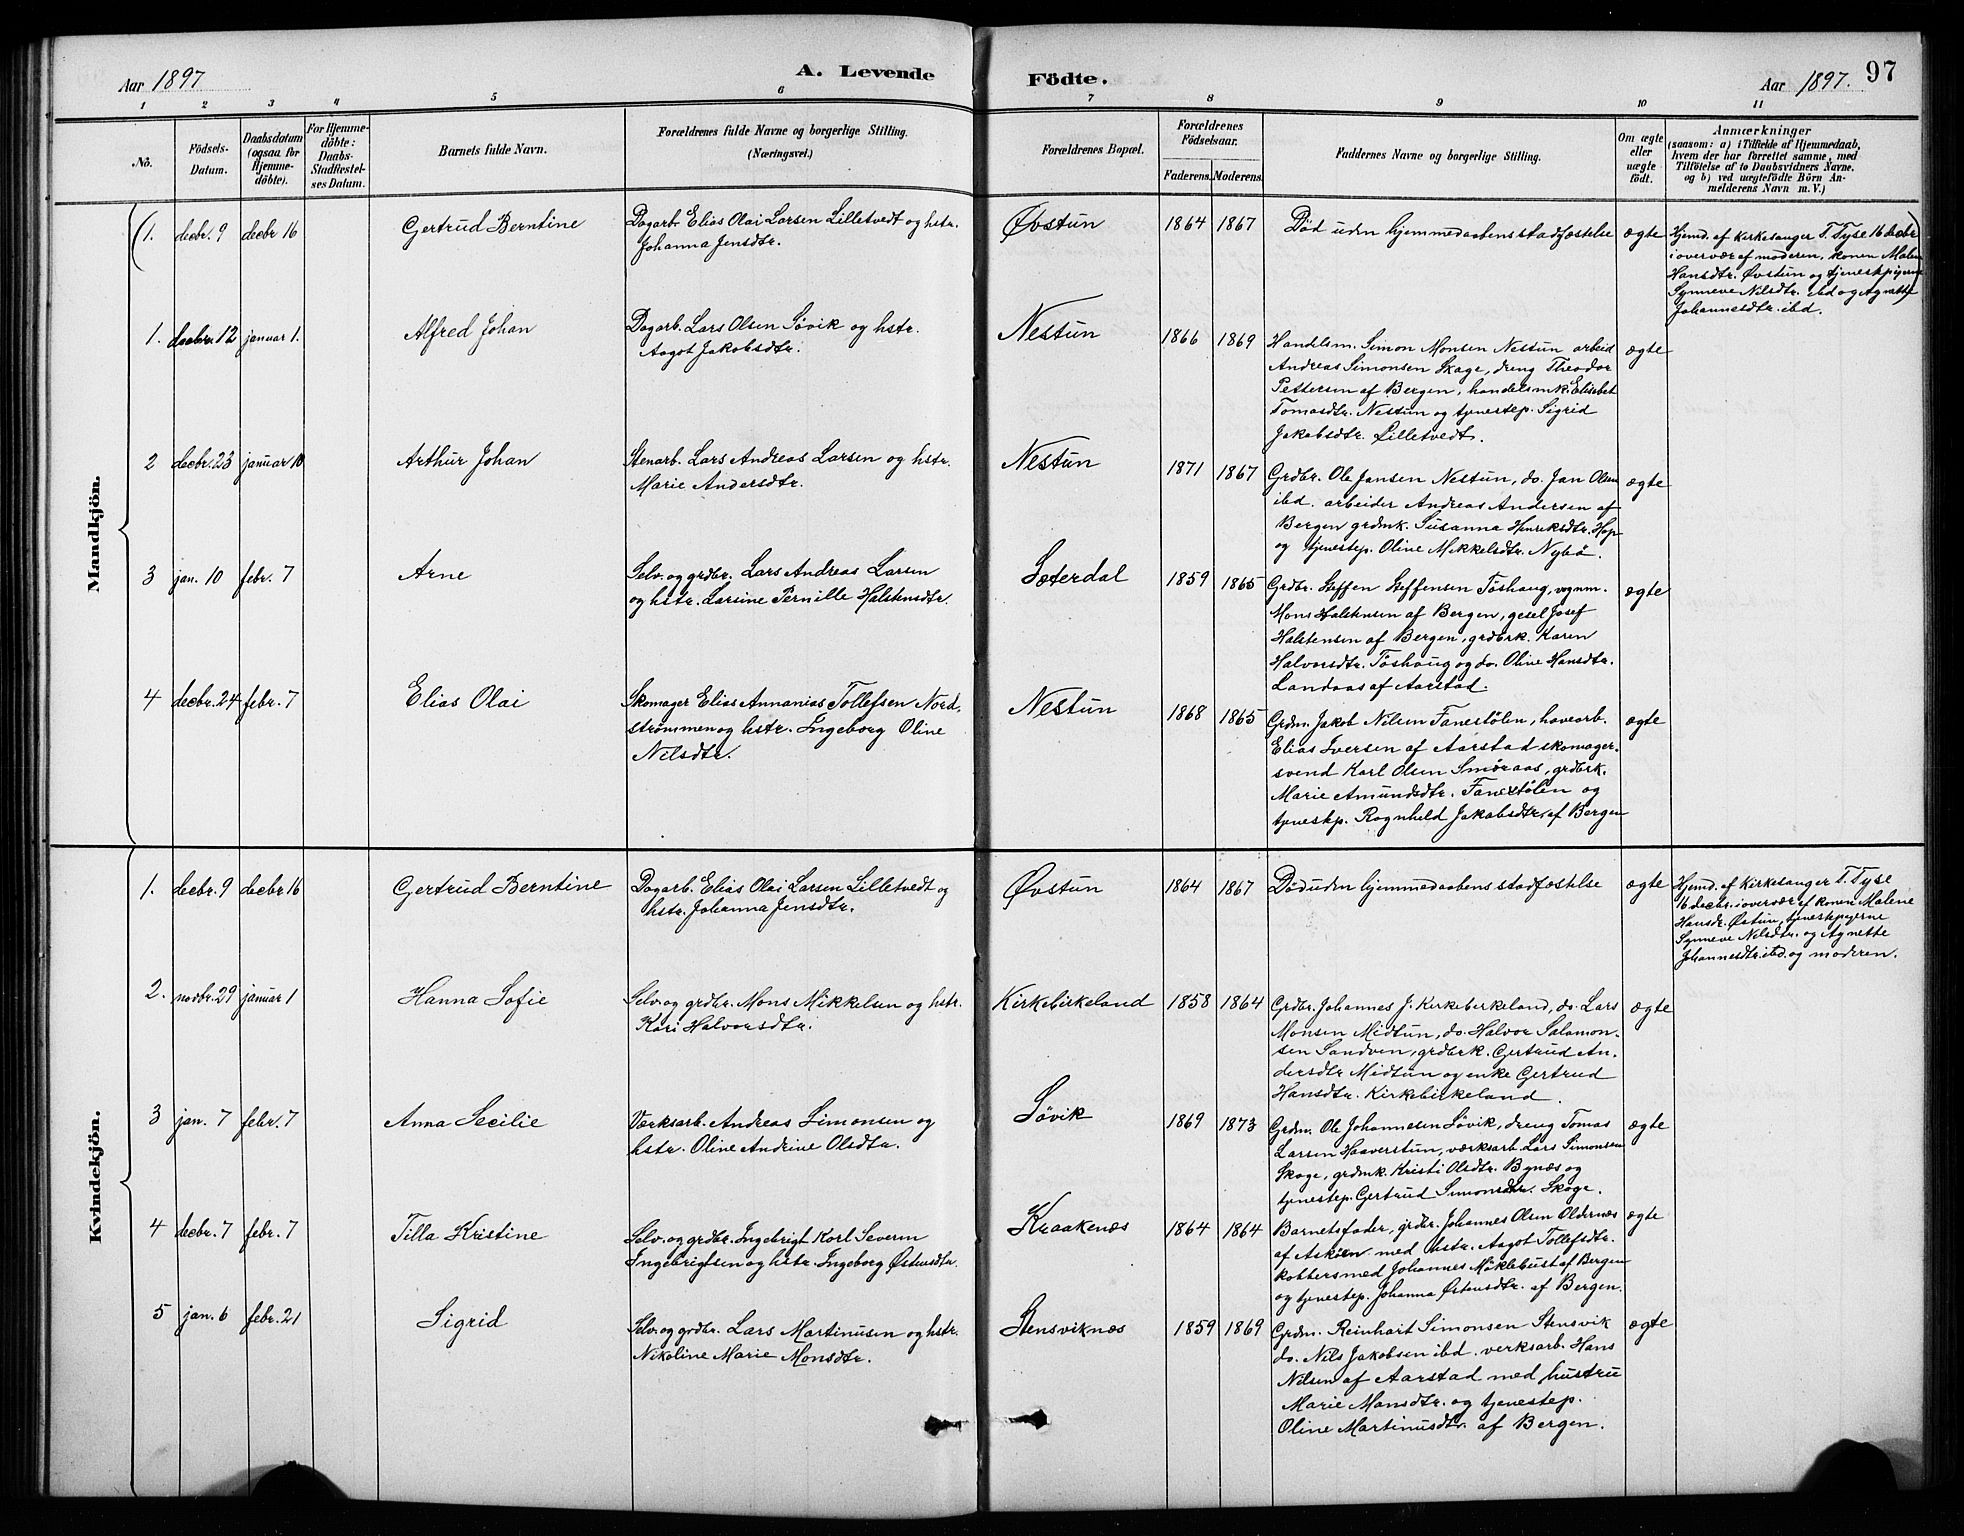 Aar 1897
A. Levende
Födte.
Aar 1897.
97
1 2 3 4 5 6 7 8 9 10 11
No.
Födsels-
Datum.
Daabsdatum
(ogsaa for
Hjemme-
döbte).
For Hjemme-
döbte:
Daabs-
Stadfæstel-
ses Datum.
Barnets fulde Navn.
Forældrenes fulde Navne og borgerlige Stilling.
(Næringsvei.)
Forældrenes Bopæl.
Forældrenes
Födselsaar.
Faderens. Moderens.
Faddernes Navne og borgerlige Stilling.
Om ægte
eller
uægte
födt.
Anmærkninger
(saasom: a) i Tilfælde af Hjemmedaab,
hvem der har forrettet samme, med
Tilföielse af to Daabsvidners Navne.
og b) ved uægtefödte Börn An-
melderens Navn m. V.)
Mandkjön.
(1. decbr. 9 decbr 16
Gertrud Berntine
Dagarb. Elias Olai Larsen Lilletvedt og hstr.
Johanna Jensdtr.
Øvstun
1864 1867
Død uden hjemmedaabens stadfæstelse
ægte
Hjemd. af kirkesanger T. Tyse 16 decbr
i overvær af moderen, konen Malene
Hansdtr. Øvstun og tjenestepigerne
Synneve Nilsdtr. ibd og Agnette
Johannesdtr. ibd.
1. decbr. 12 januar 1.
Alfred Johan
Dagarb. Lars Olsen Søvik og hstr.
Aagot Jakobsdtr.
Nestun
1866 1869
Handlem. Simon Monsen Nestun arbeid
Andreas Simonsen Skage, dreng Theodor
Pettersen af Bergen, handelsmk. Elisabet
Tomasdtr. Nestun og tjenestep. Sigrid
Jakobsdtr. Lilletvedt.
ægte
2 decbr. 23 januar 10
Arthur Johan
Stenarb. Lars Andreas Larsen og hstr.
Marie Andersdtr.
Nestun
1871 1867
Grdbr. Ole Jansen Nestun, do. Jan Olsen
ibd. arbeider Andreas Andersen af
Bergen grdmk. Susanna Henriksdtr. Hop
og tjenestep. Oline Mikkelsdtr. Nybø.
ægte
3 jan. 10 febr. 7
Arne
Selv. og grdbr. Lars Andreas Larsen
og hstr. Larsine Pernille Halstensdtr.
Sæterdal
1859 1865
Grdbr. Steffen Steffensen Töshaug, vognm.
Mons Halstensen af Bergen, gesel Josef
Halstensen af Bergen, grdbrk. Karen
Halvorsdtr. Töshaug og do. Oline Hansdtr.
Landaas af Aarstad.
ægte
4 decbr. 24 febr. 7
Elias Olai
Skomager Elias Annanias Tollefsen Nord-
strømmen og hstr. Ingeborg Oline
Nilsdtr.
Nestun
1868 1865
Grdm. Jakob Nilsen Fanestølen, havearb.
Elias Iversen af Aarstad skomager-
svend Karl Olsen Smøraas, grdbrk.
Marie Amundsdtr. Fanestølen og
tjenestp. Ragnhild Jakobsdtr. af Bergen
ægte
Kvindekjön.
1. decbr. 9 decbr 16
Gertrud Berntine
Dagarb. Elias Olai Larsen Lilletvedt og
hstr. Johanna Jensdtr.
Øvstun
1864 1867
Död uden hjemmedaabens stadfæstelse
ægte
Hjemd. af kirkesanger T. Tyse
16 decbr. i overvær af konen Malene
Hansdr. Østun, tjenestepigerne
Synneve Nilsdtr. og Agnette
Johannesdtr. ibd. og moderen.
2. novbr. 29 januar 1
Hanna Sofie
Selv. og grdbr. Mons Mikkelsen og hstr.
Kari Halvorsdtr.
Kirkebirkeland
1858 1864
Grdbr. Johannes J. Kirkebirkeland, do. Lars
Monsen Midtun, do. Halvor Salamon-
sen Sandven, grdbrk. Gertrud An-
dersdtr Midtun og enke Gertrud
Hansdtr. Kirkebirkeland.
ægte
3 jan. 7 febr. 7
Anna Secilie
Værksarb. Andreas Simonsen og
hstr. Oline Andrine Olsdtr.
Søvik
1869 1873
Grdm. Ole Johannesen Søvik, dreng Tomas
Larsen Haaverstun, værksarb. Lars Simonsen
Skage, grdmk. Kristi Olsdtr. Bynæs og
tjenestep. Gertrud Simonsdtr. Skage.
ægte
4 decbr. 7 febr. 7
Tilla Kristine
Selv. og grdbr. Ingebrigt Karl Severin
Ingebrigtsen og hstr. Ingeborg Østensdtr.
Kraakenæs
1864 1864
Barnetsfader, grdbr. Johannes Olsen Oldernæs
af Askøen med hstr. Aagot Tollefsdtr.
kobbersmed Johannes Möklebust af Bergen
og tjenestep. Johanna Østensdtr. af Bergen.
ægte
5 jan. 6 febr. 21
Sigrid
Selv. og grdbr. Lars Martinusen og hstr.
Nikoline Marie Monsdtr.
Stensviknæs
1859 1869
Grdm. Reinhart Simonsen Stensvik
do. Nils Jakobsen ibd. verksarb. Hans
Nilsen af Aarstad med hustru
Marie Monsdtr. og tjenestep.
Oline Martinusdtr. af Bergen.
ægte